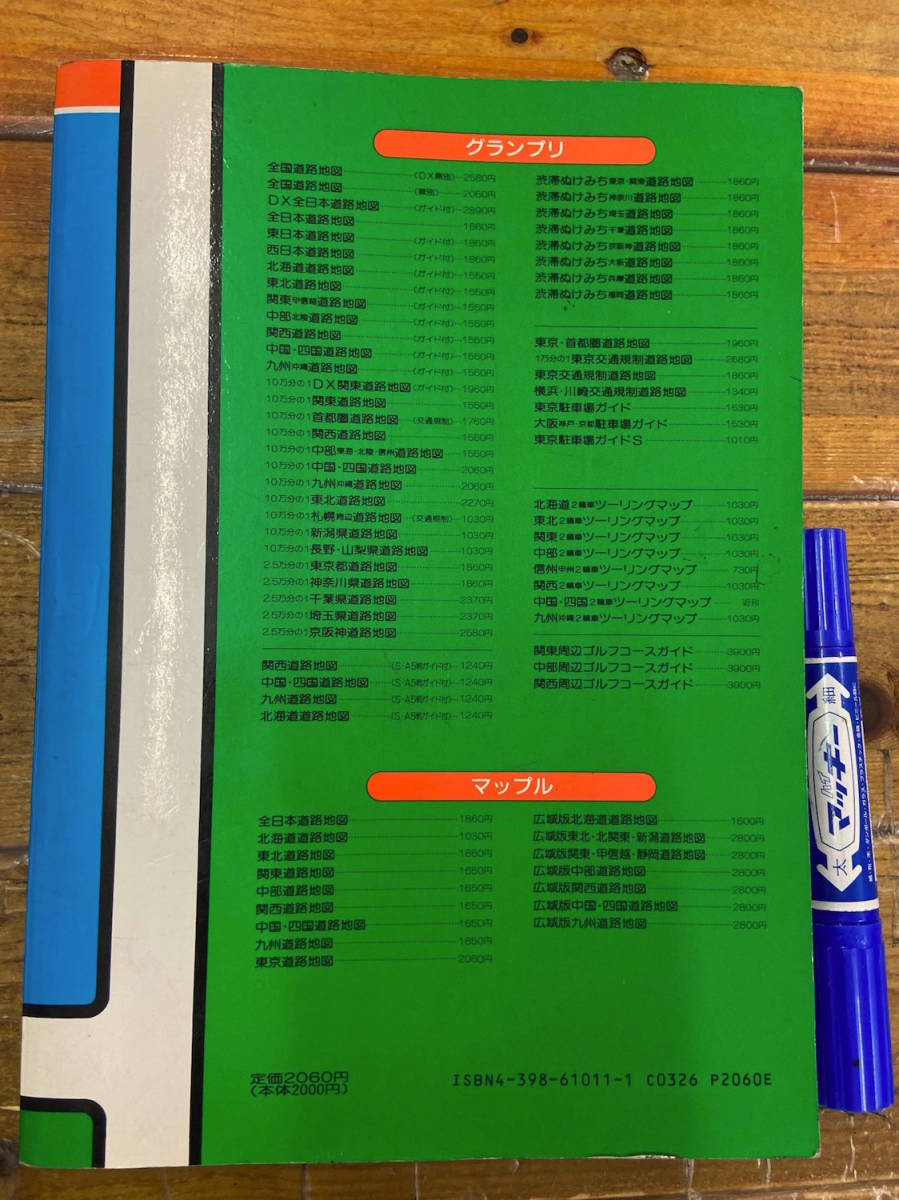 グランプリ
全国道路地図 (DX職別) 2580円
全国道路地図 (職別) 2060円
DX全日本道路地図 (ガイド付) 2890円
全日本道路地図 1860円
東日本道路地図 (ガイド付) 1860円
西日本道路地図 (ガイド付) 1860円
北海道道路地図 (ガイド付) 1550円
東北道路地図 (ガイド付) 1550円
関東甲信越道路地図 (ガイド付) 1550円
中部北陸道路地図 (ガイド付) 1550円
関西道路地図 (ガイド付) 1550円
中国・四国道路地図 (ガイド付) 1550円
九州沖縄道路地図 (ガイド付) 1550円
10万分の1DX関東道路地図 (ガイド付) 1960円
10万分の1関東道路地図 1550円
10万分の1首都圏道路地図 (交通規制) 1760円
10万分の1関西道路地図 1550円
10万分の1中部東海・北陸・信州道路地図 1550円
10万分の1中国・四国道路地図 2060円
10万分の1九州沖縄道路地図 2060円
10万分の1東北道路地図 2270円
10万分の1札幌周辺道路地図 (交通規制) 1030円
10万分の1新潟県道路地図 1030円
10万分の1長野・山梨県道路地図 1030円
2.5万分の1東京都道路地図 1860円
2.5万分の1神奈川県道路地図 1860円
2.5万分の1千葉県道路地図 2370円
2.5万分の1埼玉県道路地図 2370円
2.5万分の1京阪神道路地図 2580円
関西道路地図 (S・A5判ガイド付) 1240円
中国・四国道路地図 (S・A5判ガイド付) 1240円
九州道路地図 (S・A5判ガイド付) 1240円
北海道道路地図 (S・A5判ガイド付) 1240円
渋滞ぬけみち東京・関東道路地図 1860円
渋滞ぬけみち神奈川道路地図 1860円
渋滞ぬけみち埼玉道路地図 1860円
渋滞ぬけみち千葉道路地図 1860円
渋滞ぬけみち京阪神道路地図 1860円
渋滞ぬけみち大阪道路地図 1860円
渋滞ぬけみち兵庫道路地図 1860円
渋滞ぬけみち福岡道路地図 1860円
東京・首都圏道路地図 1960円
1万分の1東京交通規制道路地図 2680円
東京交通規制道路地図 1860円
横浜・川崎交通規制道路地図 1340円
東京駐車場ガイド 1530円
大阪神戸・京都駐車場ガイド 1530円
東京駐車場ガイドS 1010円
北海道2輪車ツーリングマップ 1030円
東北2輪車ツーリングマップ 1030円
関東2輪車ツーリングマップ 1030円
中部2輪車ツーリングマップ 1030円
信州甲州2輪車ツーリングマップ 730円
関西2輪車ツーリングマップ 1030円
中国・四国2輪車ツーリングマップ 近刊
九州沖縄2輪車ツーリングマップ 1030円
関東周辺ゴルフコースガイド 3900円
中部周辺ゴルフコースガイド 3900円
関西周辺ゴルフコースガイド 3900円
マップル
全日本道路地図 1860円
北海道道路地図 1030円
東北道路地図 1860円
関東道路地図 1650円
中部道路地図 1650円
関西道路地図 1650円
中国・四国道路地図 1650円
九州道路地図 1850円
東京道路地図 2060円
広域版北海道道路地図 1600円
広域版東北・北関東・新潟道路地図 2800円
広域版関東・甲信越・静岡道路地図 2800円
広域版中部道路地図 2800円
広域版関西道路地図 2800円
広域版中国・四国道路地図 2800円
広域版九州道路地図 2800円
定価2060円
(本体2000円)
ISBN4-398-61011-1 C0326 P2060E
細
マッキー
太